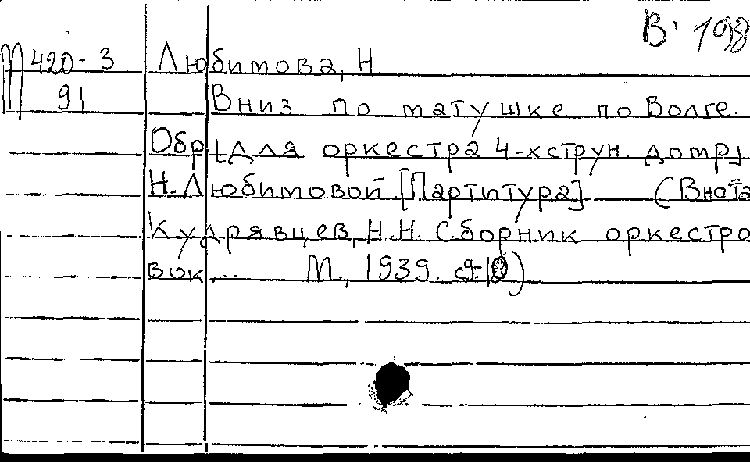 В 198
М 420-3 Любимова, Н
91 Вниз по матушке по Волге.
Обр [для оркестра 4-хструн. домр]
Н. Любимовой [Партитура] (В нота
Кудрявцев, Н.Н. Сборник оркестро
вок... М., 1939.